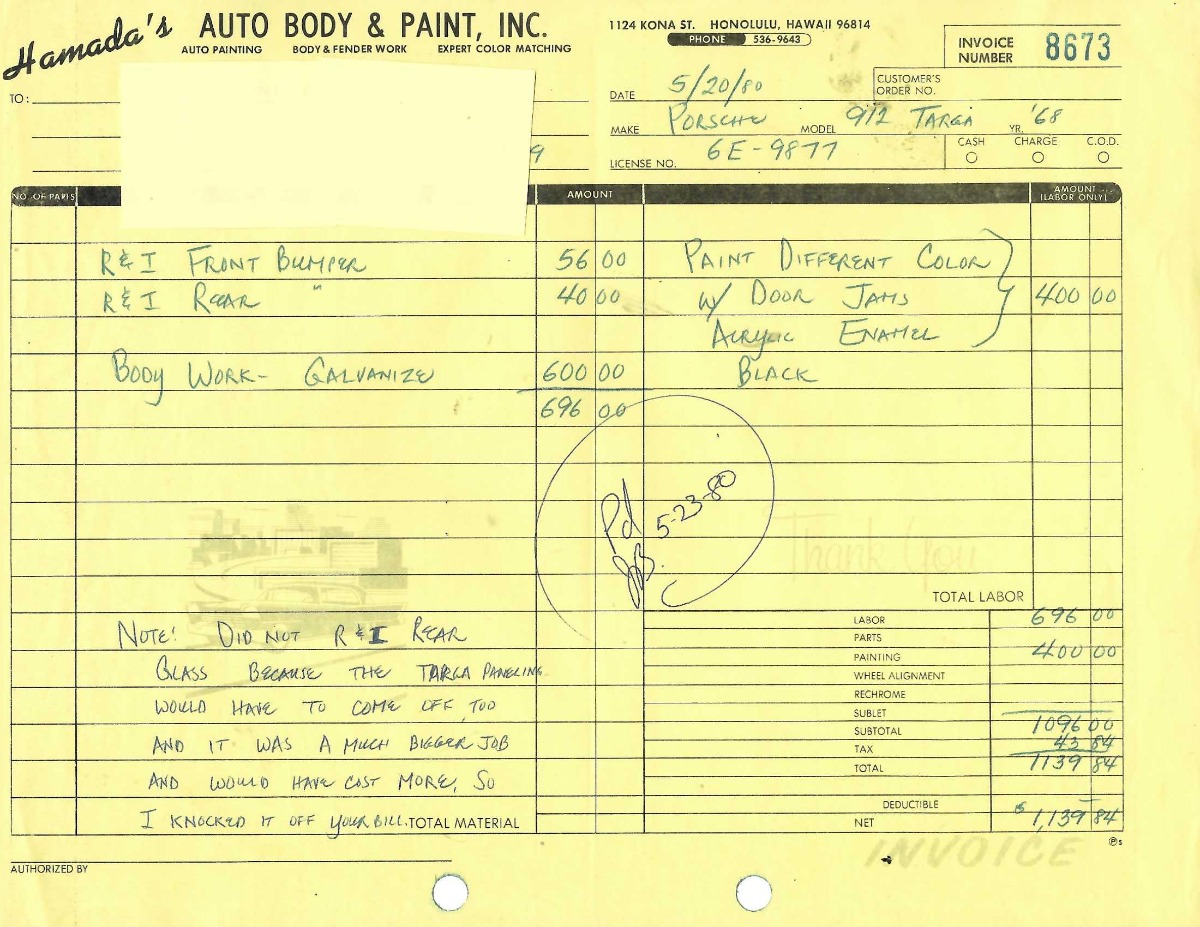 Hamada's AUTO BODY & PAINT, INC.
AUTO PAINTING BODY & FENDER WORK EXPERT COLOR MATCHING
1124 KONA ST. HONOLULU, HAWAII 96814
PHONE 536-9643
INVOICE NUMBER 8673
TO:
DATE 5/20/80
CUSTOMER'S ORDER NO.
MAKE PORSCHE MODEL 912 TARGA YR. '68
9
LICENSE NO. 6E-9877
CASH CHARGE C.O.D.
NO. OF PARTS AMOUNT AMOUNT (LABOR ONLY)
R&I FRONT BUMPER 56 00 PAINT DIFFERENT COLOR
R&I REAR " 40 00 W/ DOOR JAMS 400 00
ACRYLIC ENAMEL
BODY WORK- GALVANIZE 600 00 BLACK
696 00
Pd 5-23-80
JB.
Thank You
TOTAL LABOR
LABOR 696 00
PARTS
PAINTING 400 00
WHEEL ALIGNMENT
RECHROME
SUBLET
SUBTOTAL 1096 00
TAX 43 84
TOTAL 1139 84
DEDUCTIBLE -
NET $1,139 84
NOTE! DID NOT R&I REAR
GLASS BECAUSE THE TARGA PANELING
WOULD HAVE TO COME OFF TOO
AND IT WAS A MUCH BIGGER JOB
AND WOULD HAVE COST MORE, SO
I KNOCKED IT OFF YOUR BILL. TOTAL MATERIAL
INVOICE
AUTHORIZED BY